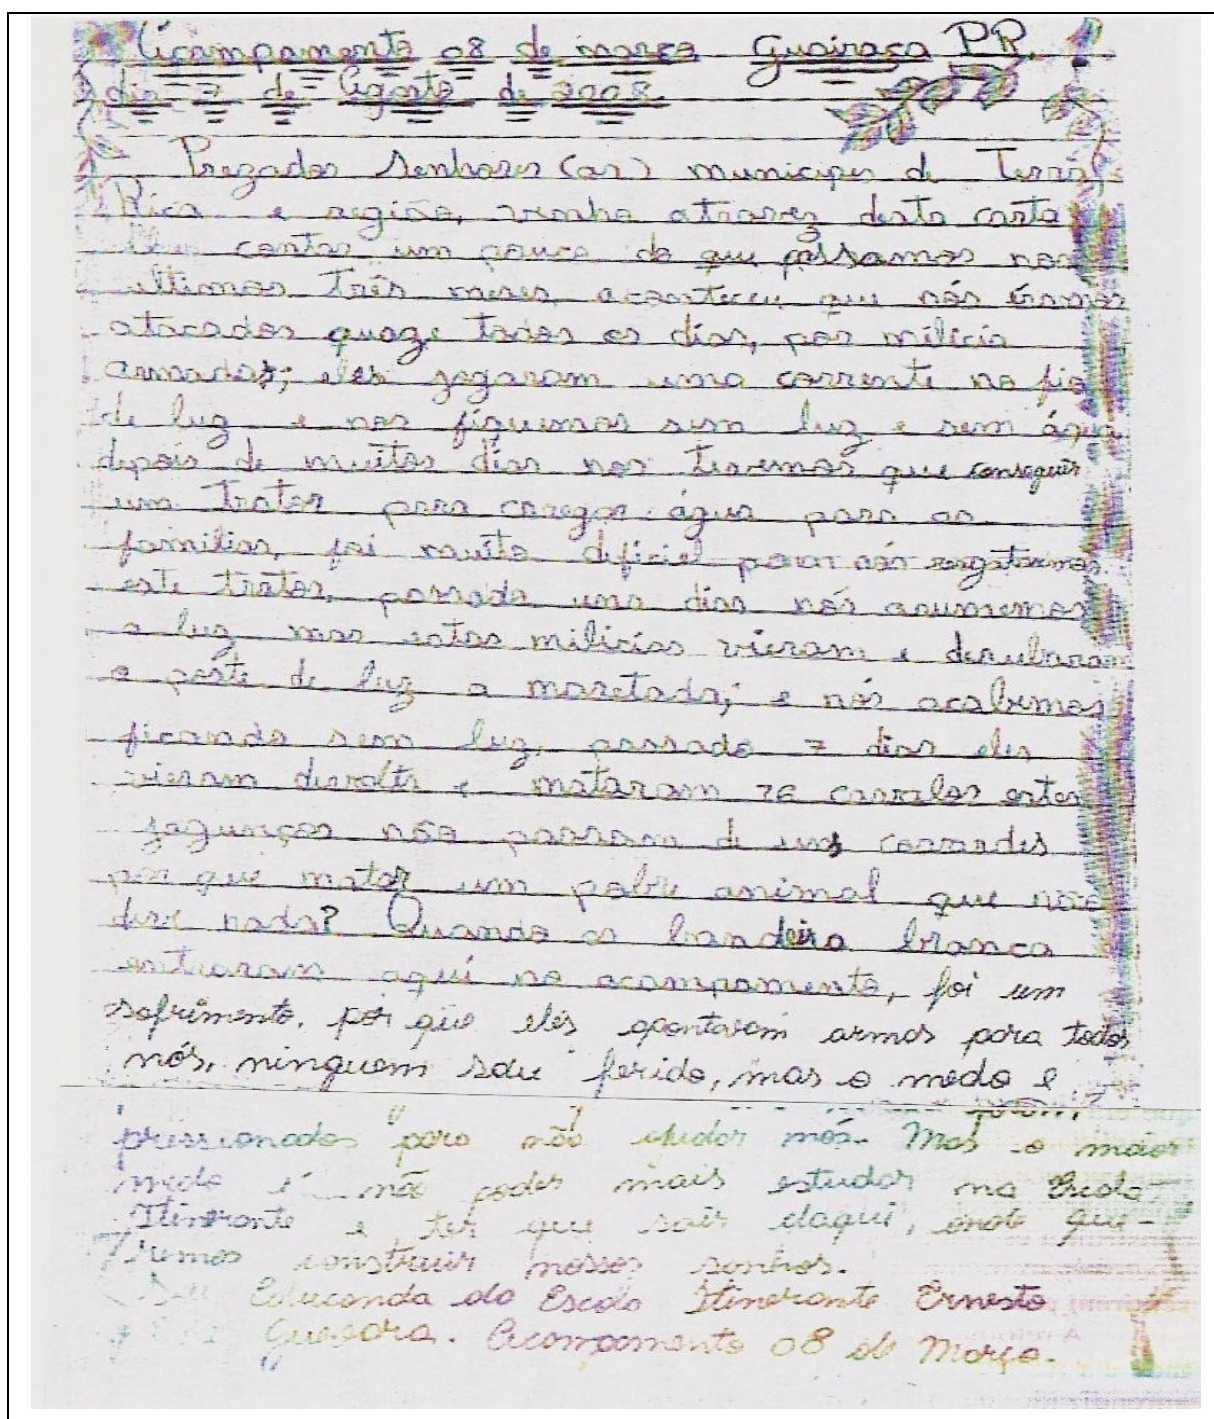 Acampamento 08 de março Guairaça PR.
dia 7 de Agosto de 2008.
Prezados Senhores (as) municipes de Terra
Rica e região, venho atravez desta carta
lhes contar um pouco do que passamos nos
ultimos três meses, aconteceu que nós éramos
atacados quaze todos os dias, por milicia
armadas; eles jogaram uma corrente no fio
de luz e nos fiquemos sem luz e sem água
depois de muitos dias nos tivemos que conseguir
um trator para caregar água para as
familias, foi muito dificiel para nós resgatarmos
este trator, passado uns dias nós arrumemos
a luz mas estas milicias vieram e derrubaram
o poste de luz a maretada; e nós acabemos
ficando sem luz, passado 7 dias eles
vieram devolta e mataram 16 cavalos estes
jagunços não passam de uns covardes
por que matar um pobre animal que não
deve nada? Quando os bandeira branca
entraram aqui no acampamento, foi um
sofrimento, por que eles apontavam armas para todos
nós, ninguem saiu ferido, mas o medo e
foram
pressionados para não ajudar nós. Mas o maior
medo é não poder mais estudar na Escola
Itinerante e ter que sair daqui, onde que-
remos construir nossos sonhos.
Sou Educanda da Escola Itinerante Ernesto
Guevara. Acampamento 08 de Março.